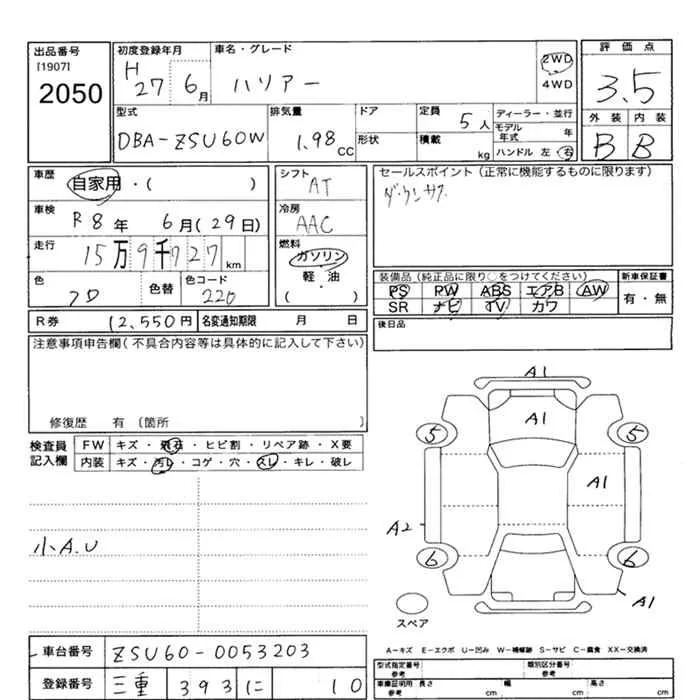 出品番号
[1907]
2050
初度登録年月
H
27 6月
車名・グレード
ハリアー
2WD
4WD
評価点
3.5
外装 内装
B B
型式
DBA-ZSU60W
排気量
1.98 CC
ドア
形状
定員
5人
積載
kg
ディーラー・並行
モデル年式 年
ハンドル 左 右
車歴
自家用・( )
車検
R8年 6月(29日)
走行
15万9千727km
色
クロ
色替
色コード
220
シフト
AT
冷房
AAC
燃料
ガソリン
軽・油
( )
セールスポイント(正常に機能するものに限ります)
装備品(純正品に限り○をつけてください)
PS PW ABS エアB AW
SR ナビ TV カワ
新車保証書
有・無
R券 12,550円 名変通知期限 月 日
後日品
注意事項申告欄(不具合内容等は具体的に記入して下さい)
修復歴 有〔箇所 〕
検査員
記入欄
FW キズ・飛石・ヒビ割・リペア跡・X要
内装 キズ・汚レ・コゲ・穴・スレ・キレ・破レ
小A.U
A1
A1
5 5
A1
A2
6 6
A1
スペア
A-キズ E-エクボ U-凹み W-補修跡 S-サビ C-腐食 XX-交換済
車台番号 ZSU60-0053203
登録番号 三重 393 に 10
型式指定番号
参考
類別区分番号
参考
車庫証明用
参考
長さ cm 幅 cm 高さ cm